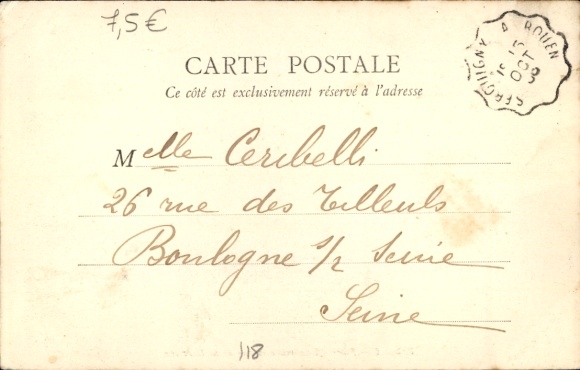 7,5€
SERQUIGNY A ROUEN
15
OCT
CARTE POSTALE
Ce côté est exclusivement réservé à l'adresse
Melle Ceribelli
26 rue des Tilleuls
Boulogne s/ Seine
Seine
118